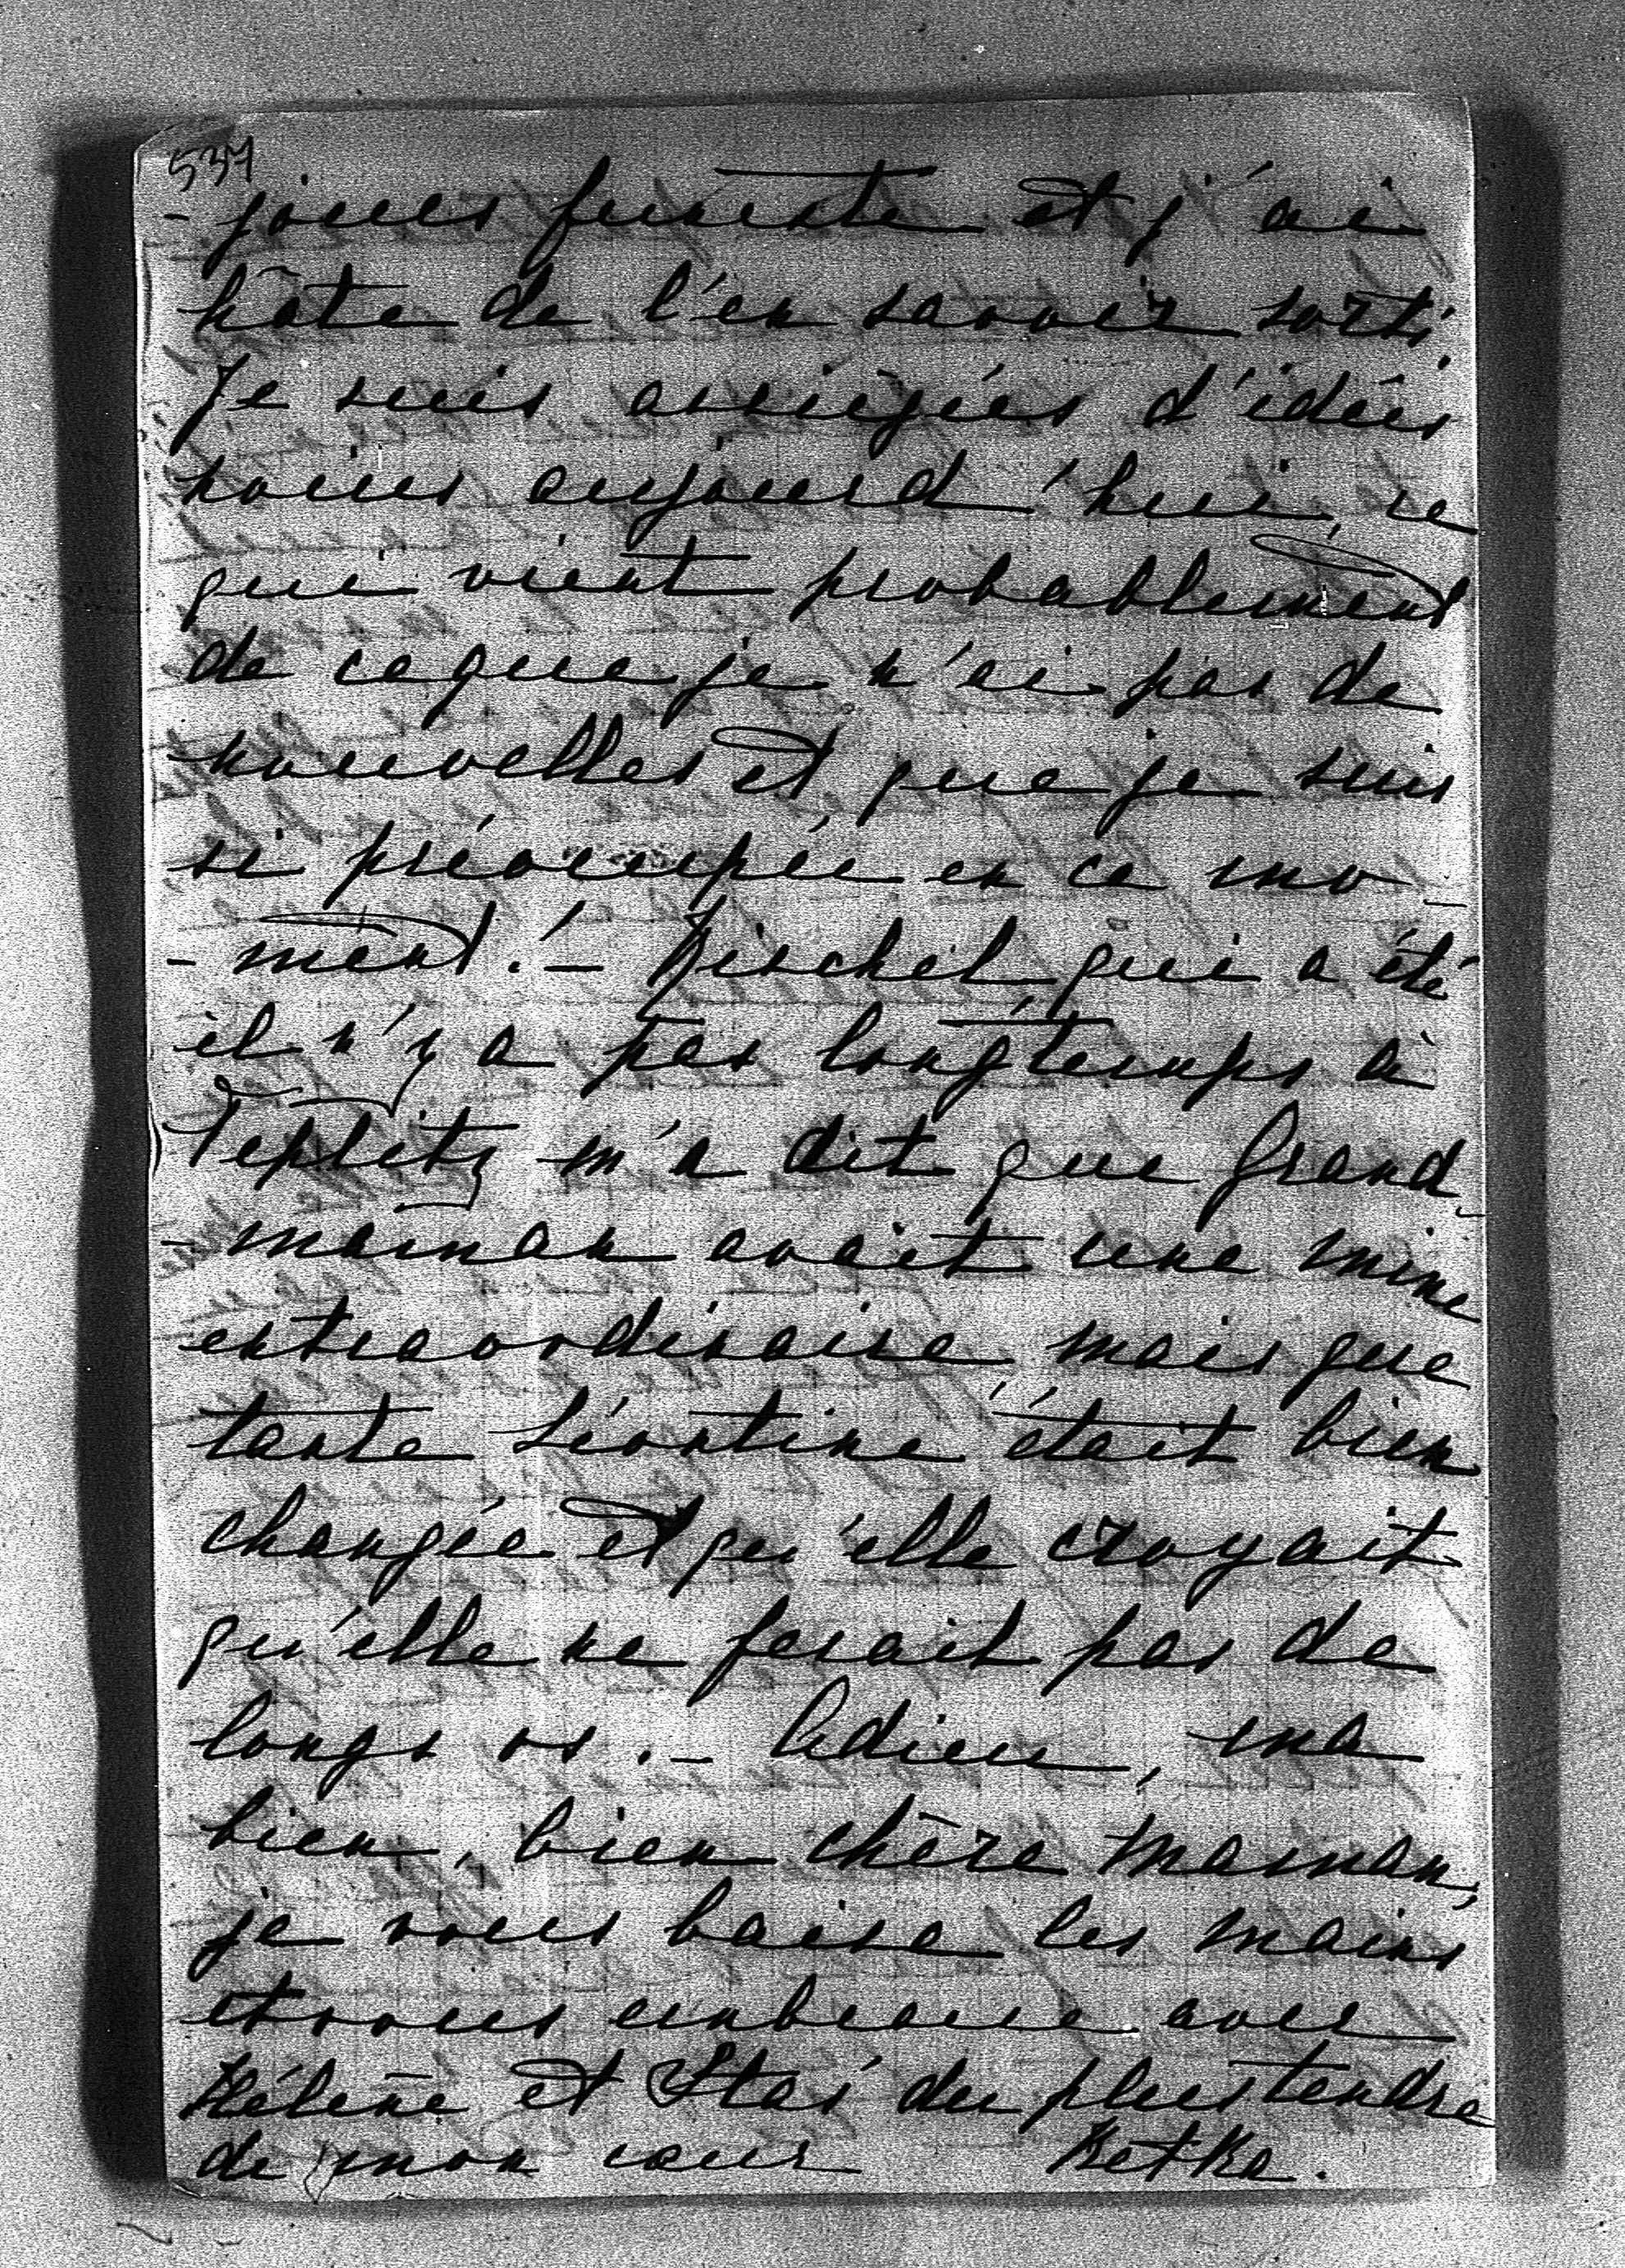 537
- jours funeste et j'ai
hâte de l'en savoir sorti.
Je suis assiégées d'idées
noires aujourd'hui, ce
qui vient probablement
de ceque je n'ai pas de
nouvelles et que je suis
si préoccupée en ce mo-
- ment! - Fischel qui a été
il n'y a pas longtemps à
Teplitz m'a dit que Grand
- maman avait une mine
extraordinaire, mais que
tante Léontine était bien
changée et qu'elle croyait
qu'elle ne ferait pas de
longs os. - Adieu, ma
bien, bien chère Maman,
je vous baise les mains
et vous embrasse avec
Hélène et Staś du plus tendre
de mon cœur Betka.